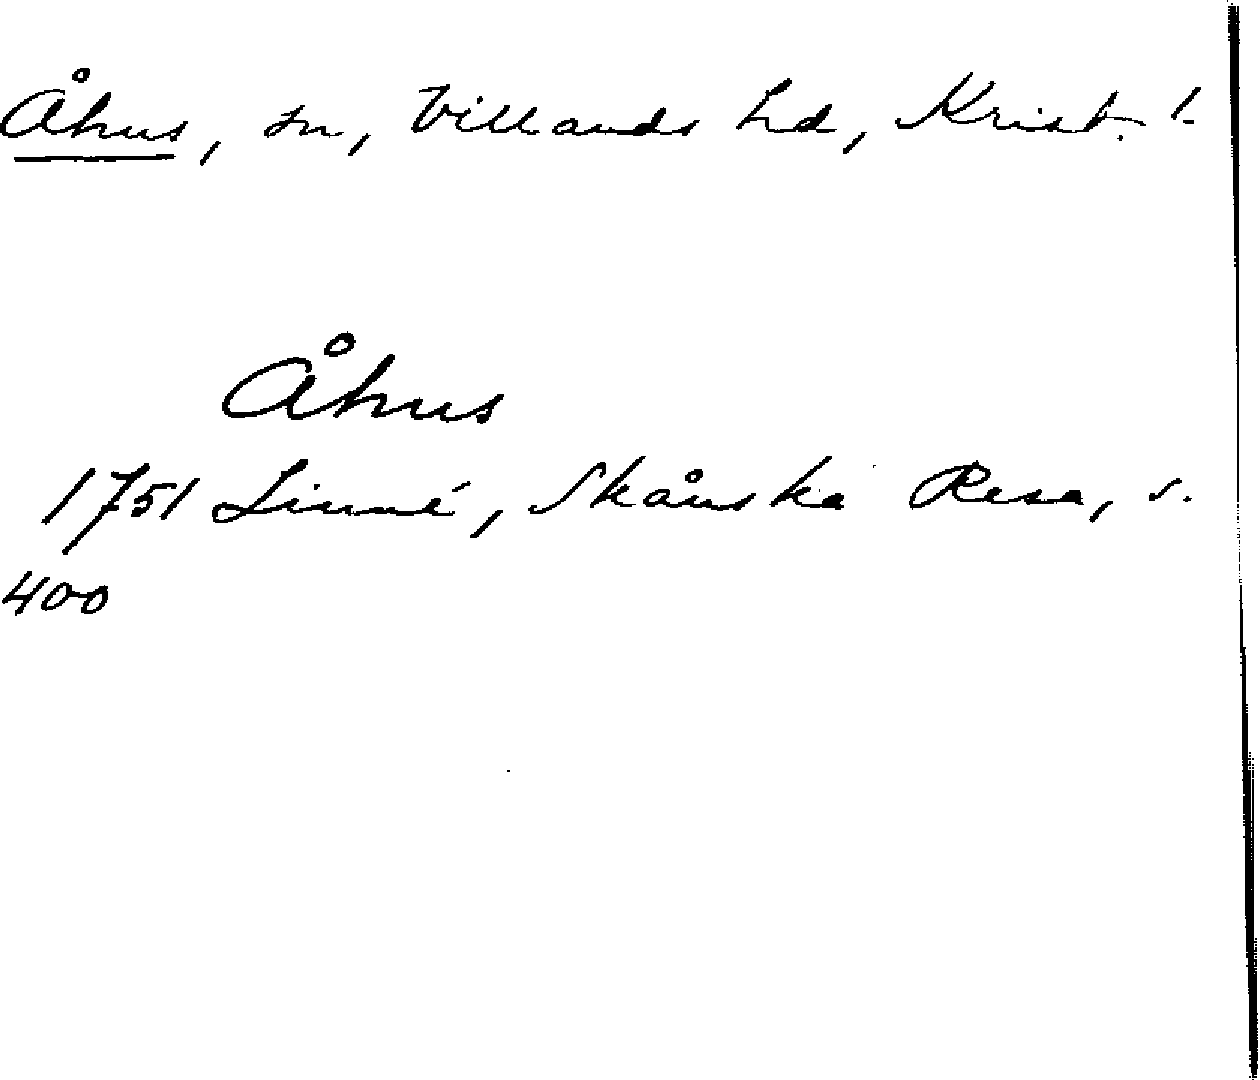 Åhus, sn, Villands hd, Krist. l.
Åhus
1751 Linné, Skånska Resa, s.
400